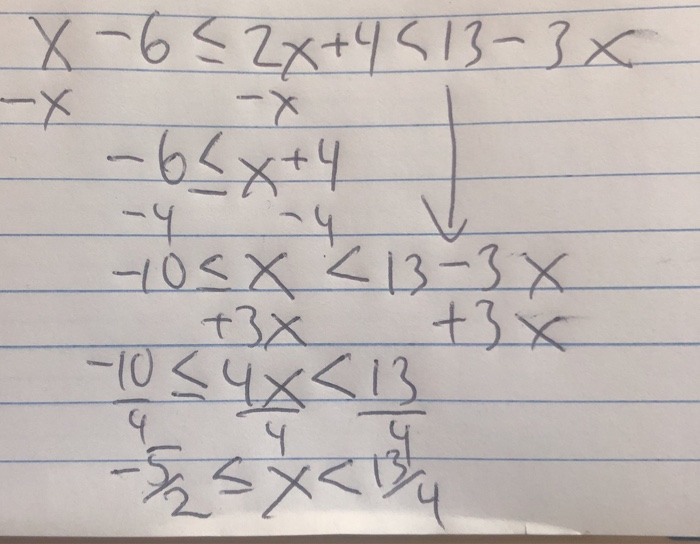 x - 6 ≤ 2x + 4 < 13 - 3x
-x -x
-6 ≤ x + 4
-4 -4
-10 ≤ x < 13 - 3x
+3x +3x
-10/4 ≤ 4x/4 < 13/4
-5/2 ≤ x < 13/4